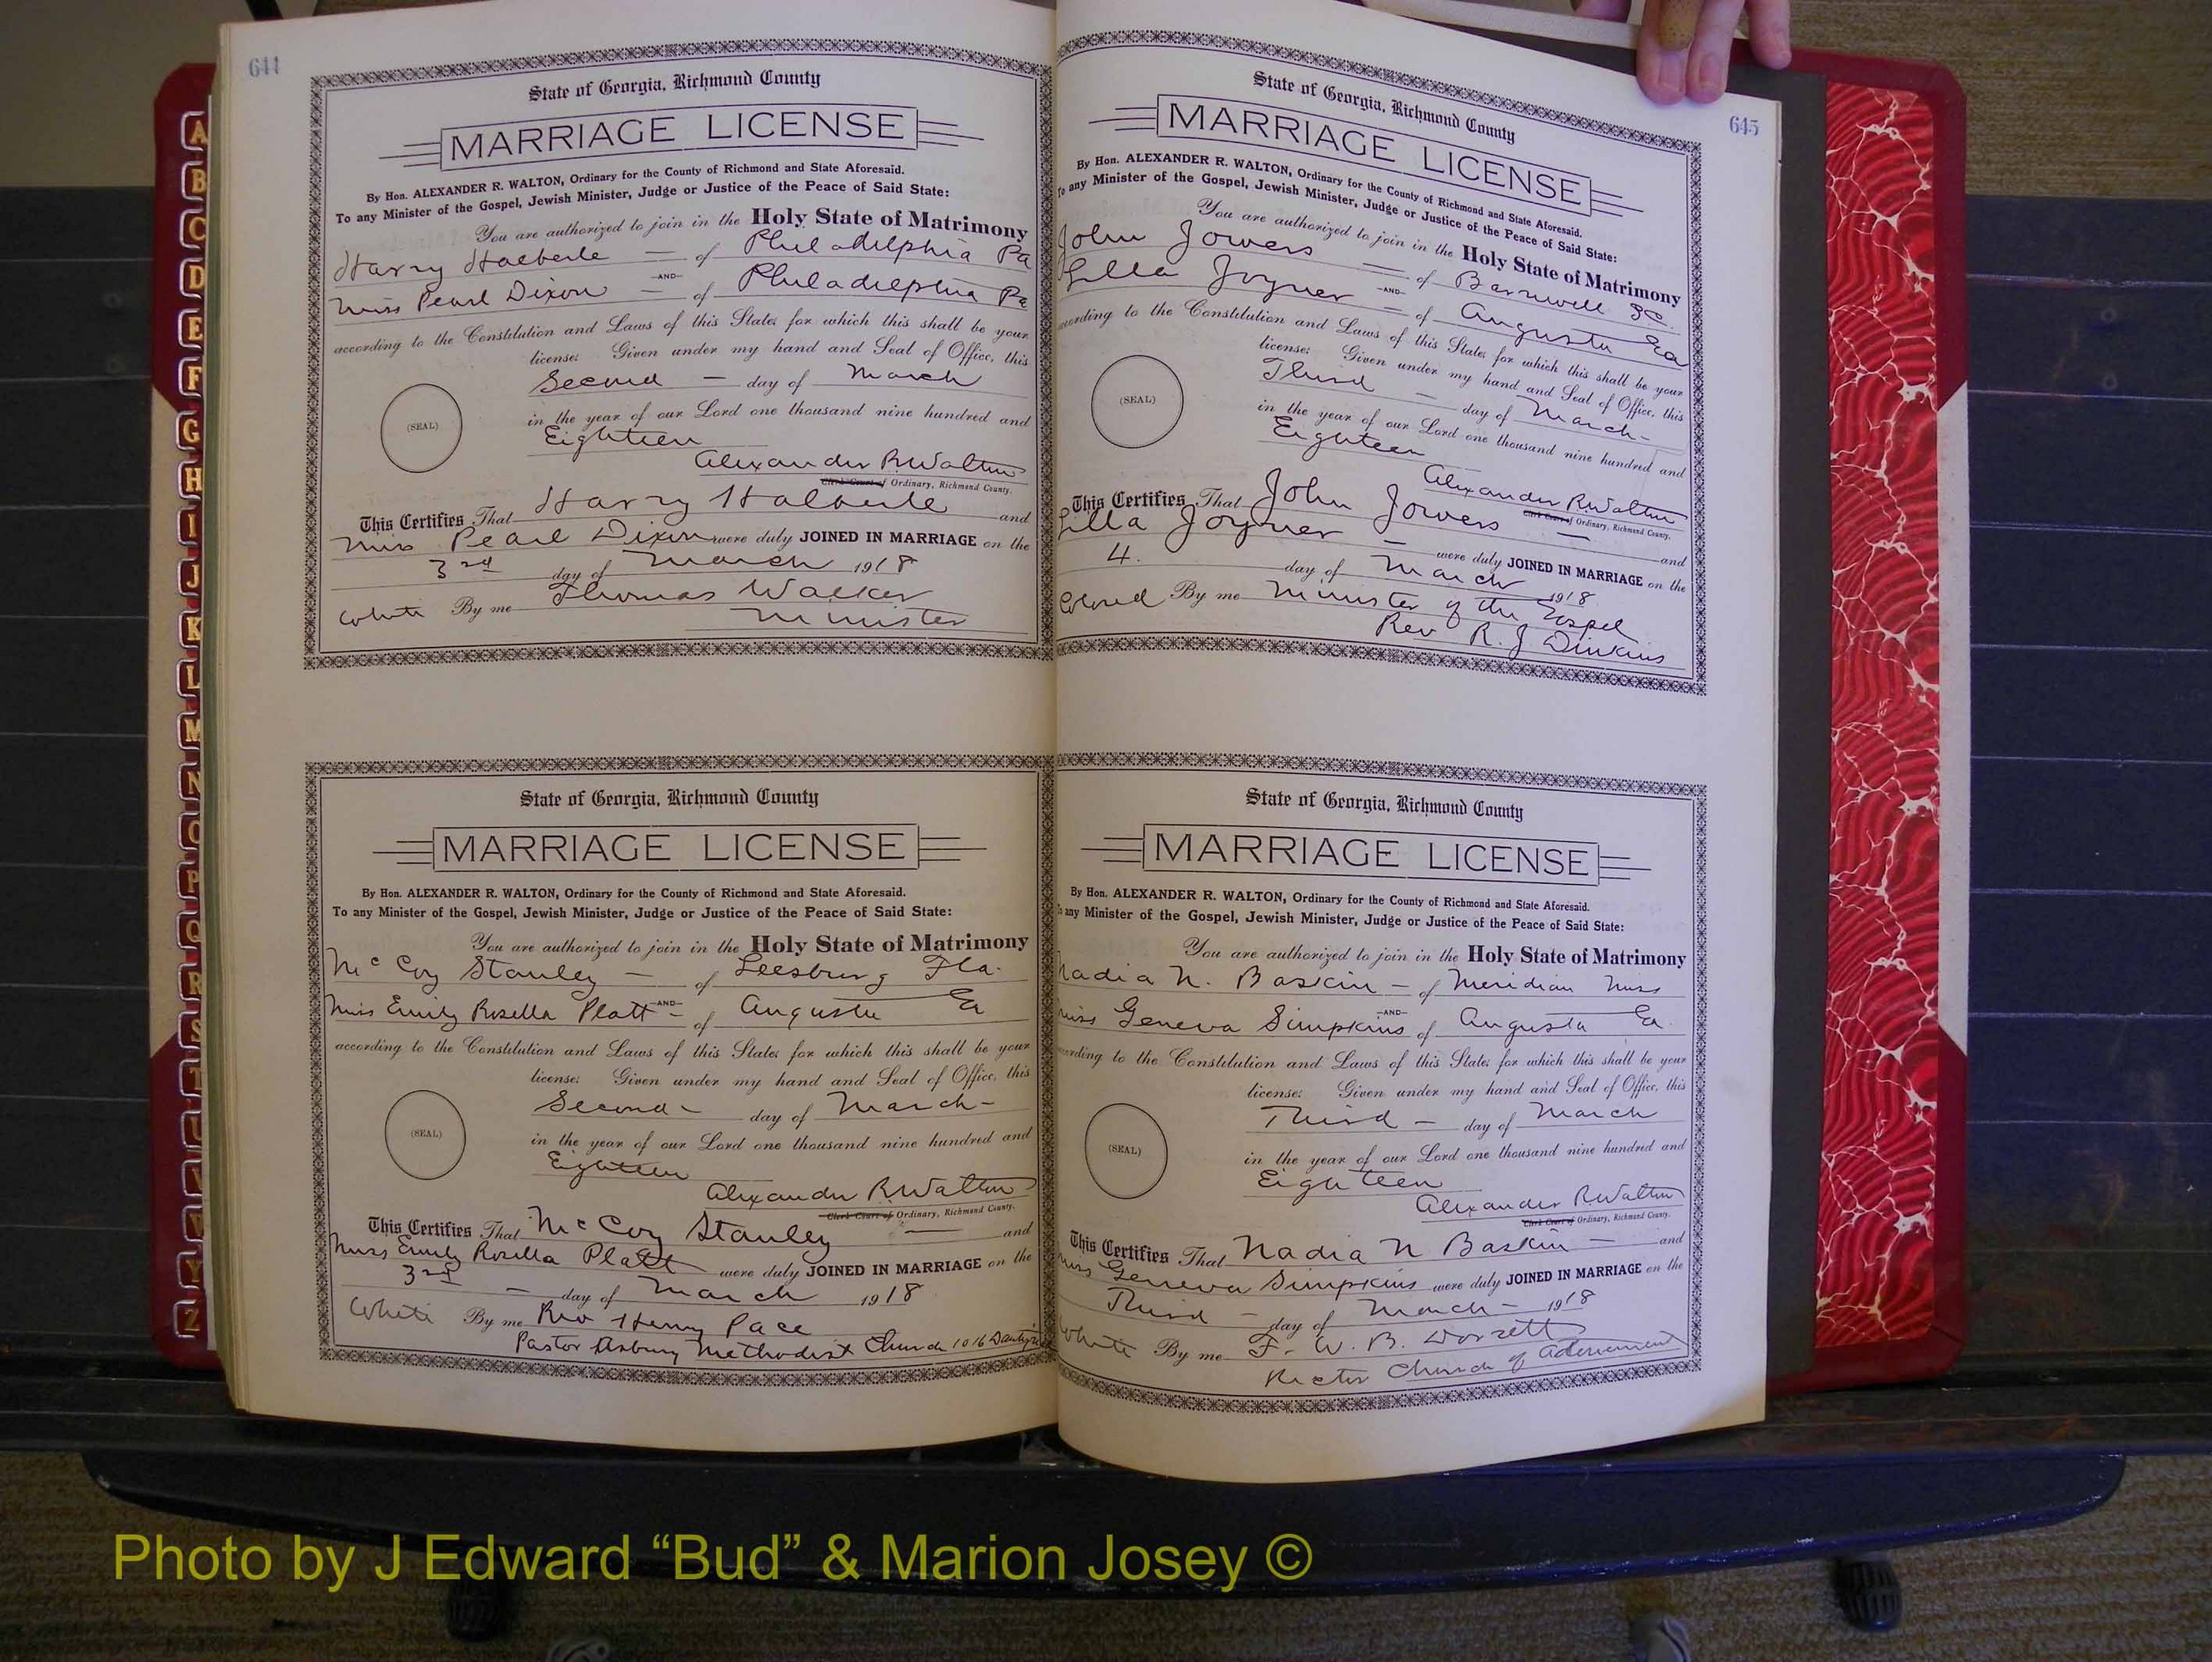 644
State of Georgia, Richmond County
MARRIAGE LICENSE
By Hon. ALEXANDER R. WALTON, Ordinary for the County of Richmond and State Aforesaid.
To any Minister of the Gospel, Jewish Minister, Judge or Justice of the Peace of Said State:
You are authorized to join in the Holy State of Matrimony
Harry Halberle of Philadelphia Pa
AND
Miss Pearl Dixon of Philadelphia Pa
according to the Constitution and Laws of this State; for which this shall be your
license: Given under my hand and Seal of Office, this
Second day of March
(SEAL)
in the year of our Lord one thousand nine hundred and
Eighteen
Alexander R Walton
Clerk Court of Ordinary, Richmond County.
This Certifies That Harry Halberle and
Miss Pearl Dixon were duly JOINED IN MARRIAGE on the
3rd day of March 1918
White By me Thomas Walker
Minister
State of Georgia, Richmond County
MARRIAGE LICENSE
By Hon. ALEXANDER R. WALTON, Ordinary for the County of Richmond and State Aforesaid.
To any Minister of the Gospel, Jewish Minister, Judge or Justice of the Peace of Said State:
You are authorized to join in the Holy State of Matrimony
McCoy Stanley of Leesburg Fla.
AND
Miss Emily Rosella Platt of Augusta Ga
according to the Constitution and Laws of this State; for which this shall be your
license: Given under my hand and Seal of Office, this
Second day of March
(SEAL)
in the year of our Lord one thousand nine hundred and
Eighteen
Alexander R Walton
Clerk Court of Ordinary, Richmond County.
This Certifies That McCoy Stanley and
Miss Emily Rosella Platt were duly JOINED IN MARRIAGE on the
3rd day of March 1918
White By me Rev Henry Pace
Pastor Asbury Methodist Church 1016
645
State of Georgia, Richmond County
MARRIAGE LICENSE
By Hon. ALEXANDER R. WALTON, Ordinary for the County of Richmond and State Aforesaid.
To any Minister of the Gospel, Jewish Minister, Judge or Justice of the Peace of Said State:
You are authorized to join in the Holy State of Matrimony
John Jowers of Barnwell SC.
AND
Lilla Joyner of Augusta Ga
according to the Constitution and Laws of this State; for which this shall be your
license: Given under my hand and Seal of Office, this
Third day of March
(SEAL)
in the year of our Lord one thousand nine hundred and
Eighteen
Alexander R Walton
Clerk Court of Ordinary, Richmond County.
This Certifies That John Jowers and
Lilla Joyner were duly JOINED IN MARRIAGE on the
4. day of March 1918
Colored By me Minister of the Gospel
Rev R. J. Dinkins
State of Georgia, Richmond County
MARRIAGE LICENSE
By Hon. ALEXANDER R. WALTON, Ordinary for the County of Richmond and State Aforesaid.
To any Minister of the Gospel, Jewish Minister, Judge or Justice of the Peace of Said State:
You are authorized to join in the Holy State of Matrimony
Nadia N. Baskin of Meridian Miss
AND
Miss Geneva Simpkins of Augusta Ga.
according to the Constitution and Laws of this State; for which this shall be your
license: Given under my hand and Seal of Office, this
Third day of March
(SEAL)
in the year of our Lord one thousand nine hundred and
Eighteen
Alexander R Walton
Clerk Court of Ordinary, Richmond County.
This Certifies That Nadia N Baskin and
Miss Geneva Simpkins were duly JOINED IN MARRIAGE on the
Third day of March 1918
White By me F. W. B. Dorsett
Rector Church of Atonement
A
B
C
D
E
F
G
H
I
J
K
L
M
N
O
P
Q
R
S
T
U
V
W
Y
Z
Photo by J Edward “Bud” & Marion Josey ©